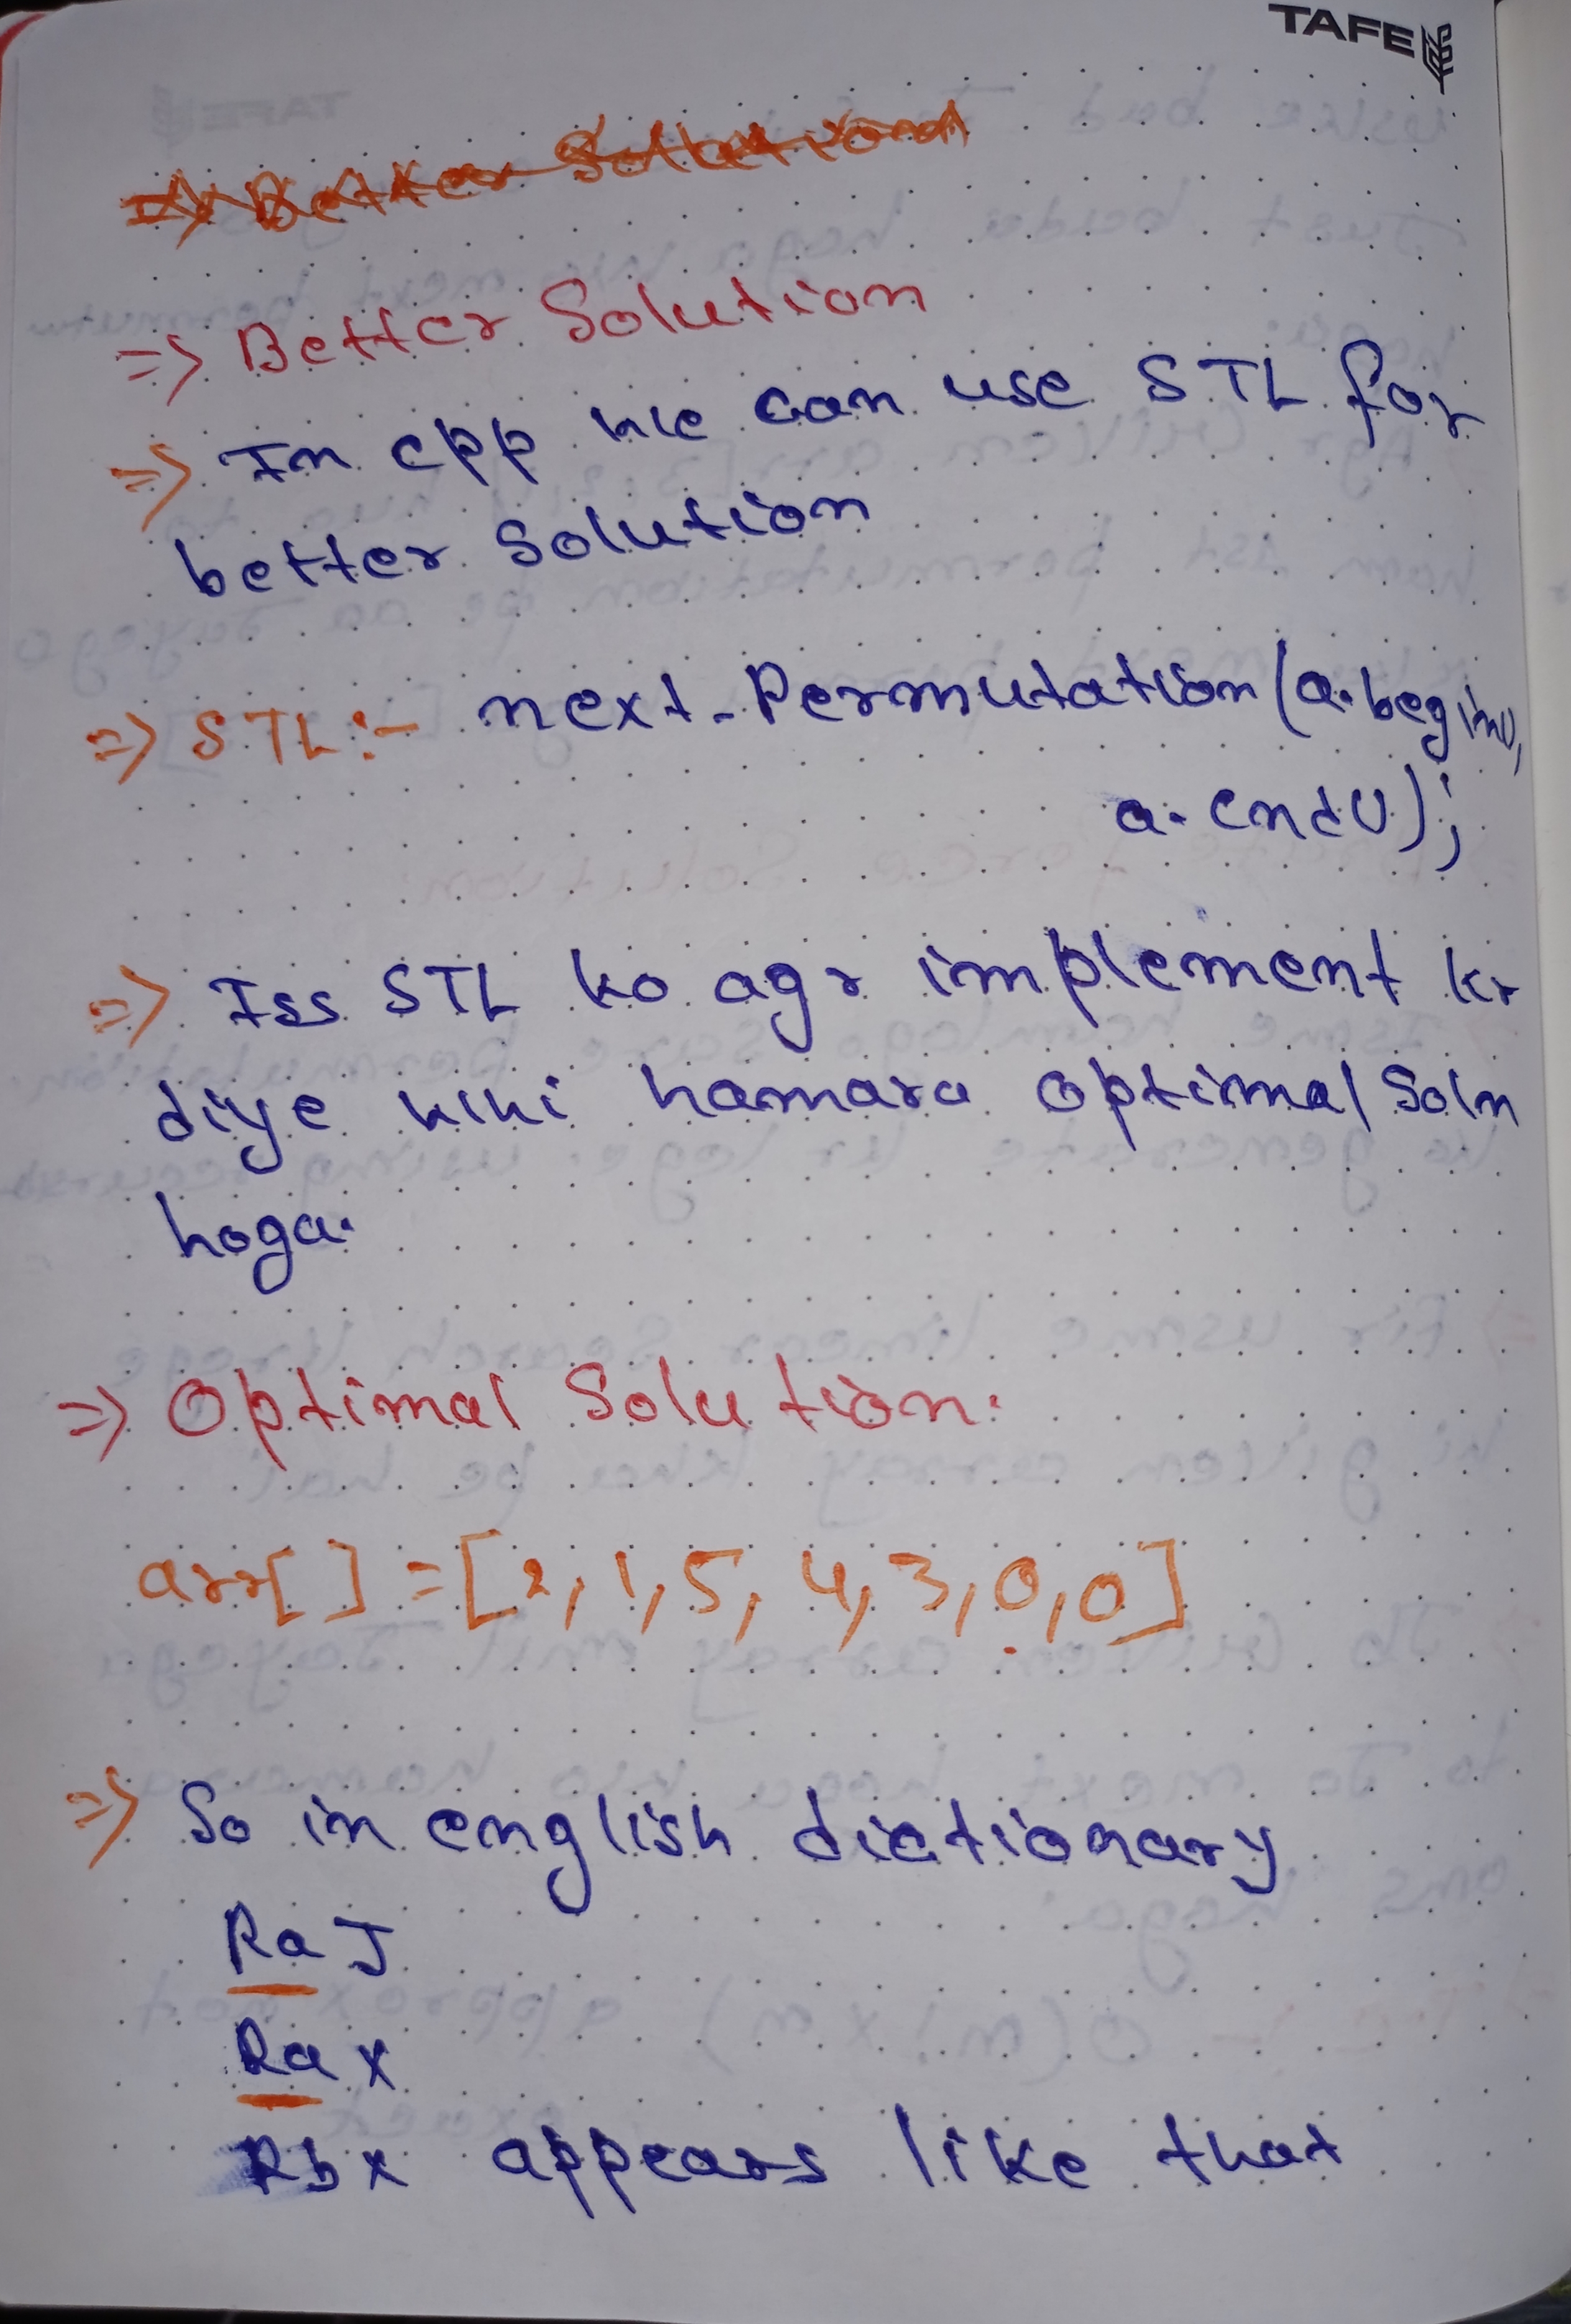 TAFE
=> Better Solution
=> Better Solution
=> In cpp we can use STL for
better solution
=> STL :- next_Permutation(a.begin(),
a.end());
=> Iss STL ko agr implement kr
diye whi hamara optimal Soln
hoga.
=> Optimal Solution.
arr[ ] = [2, 1, 5, 4, 3, 0, 0]
=> So in english dictionary
RaJ
Rax
Rbx appears like that